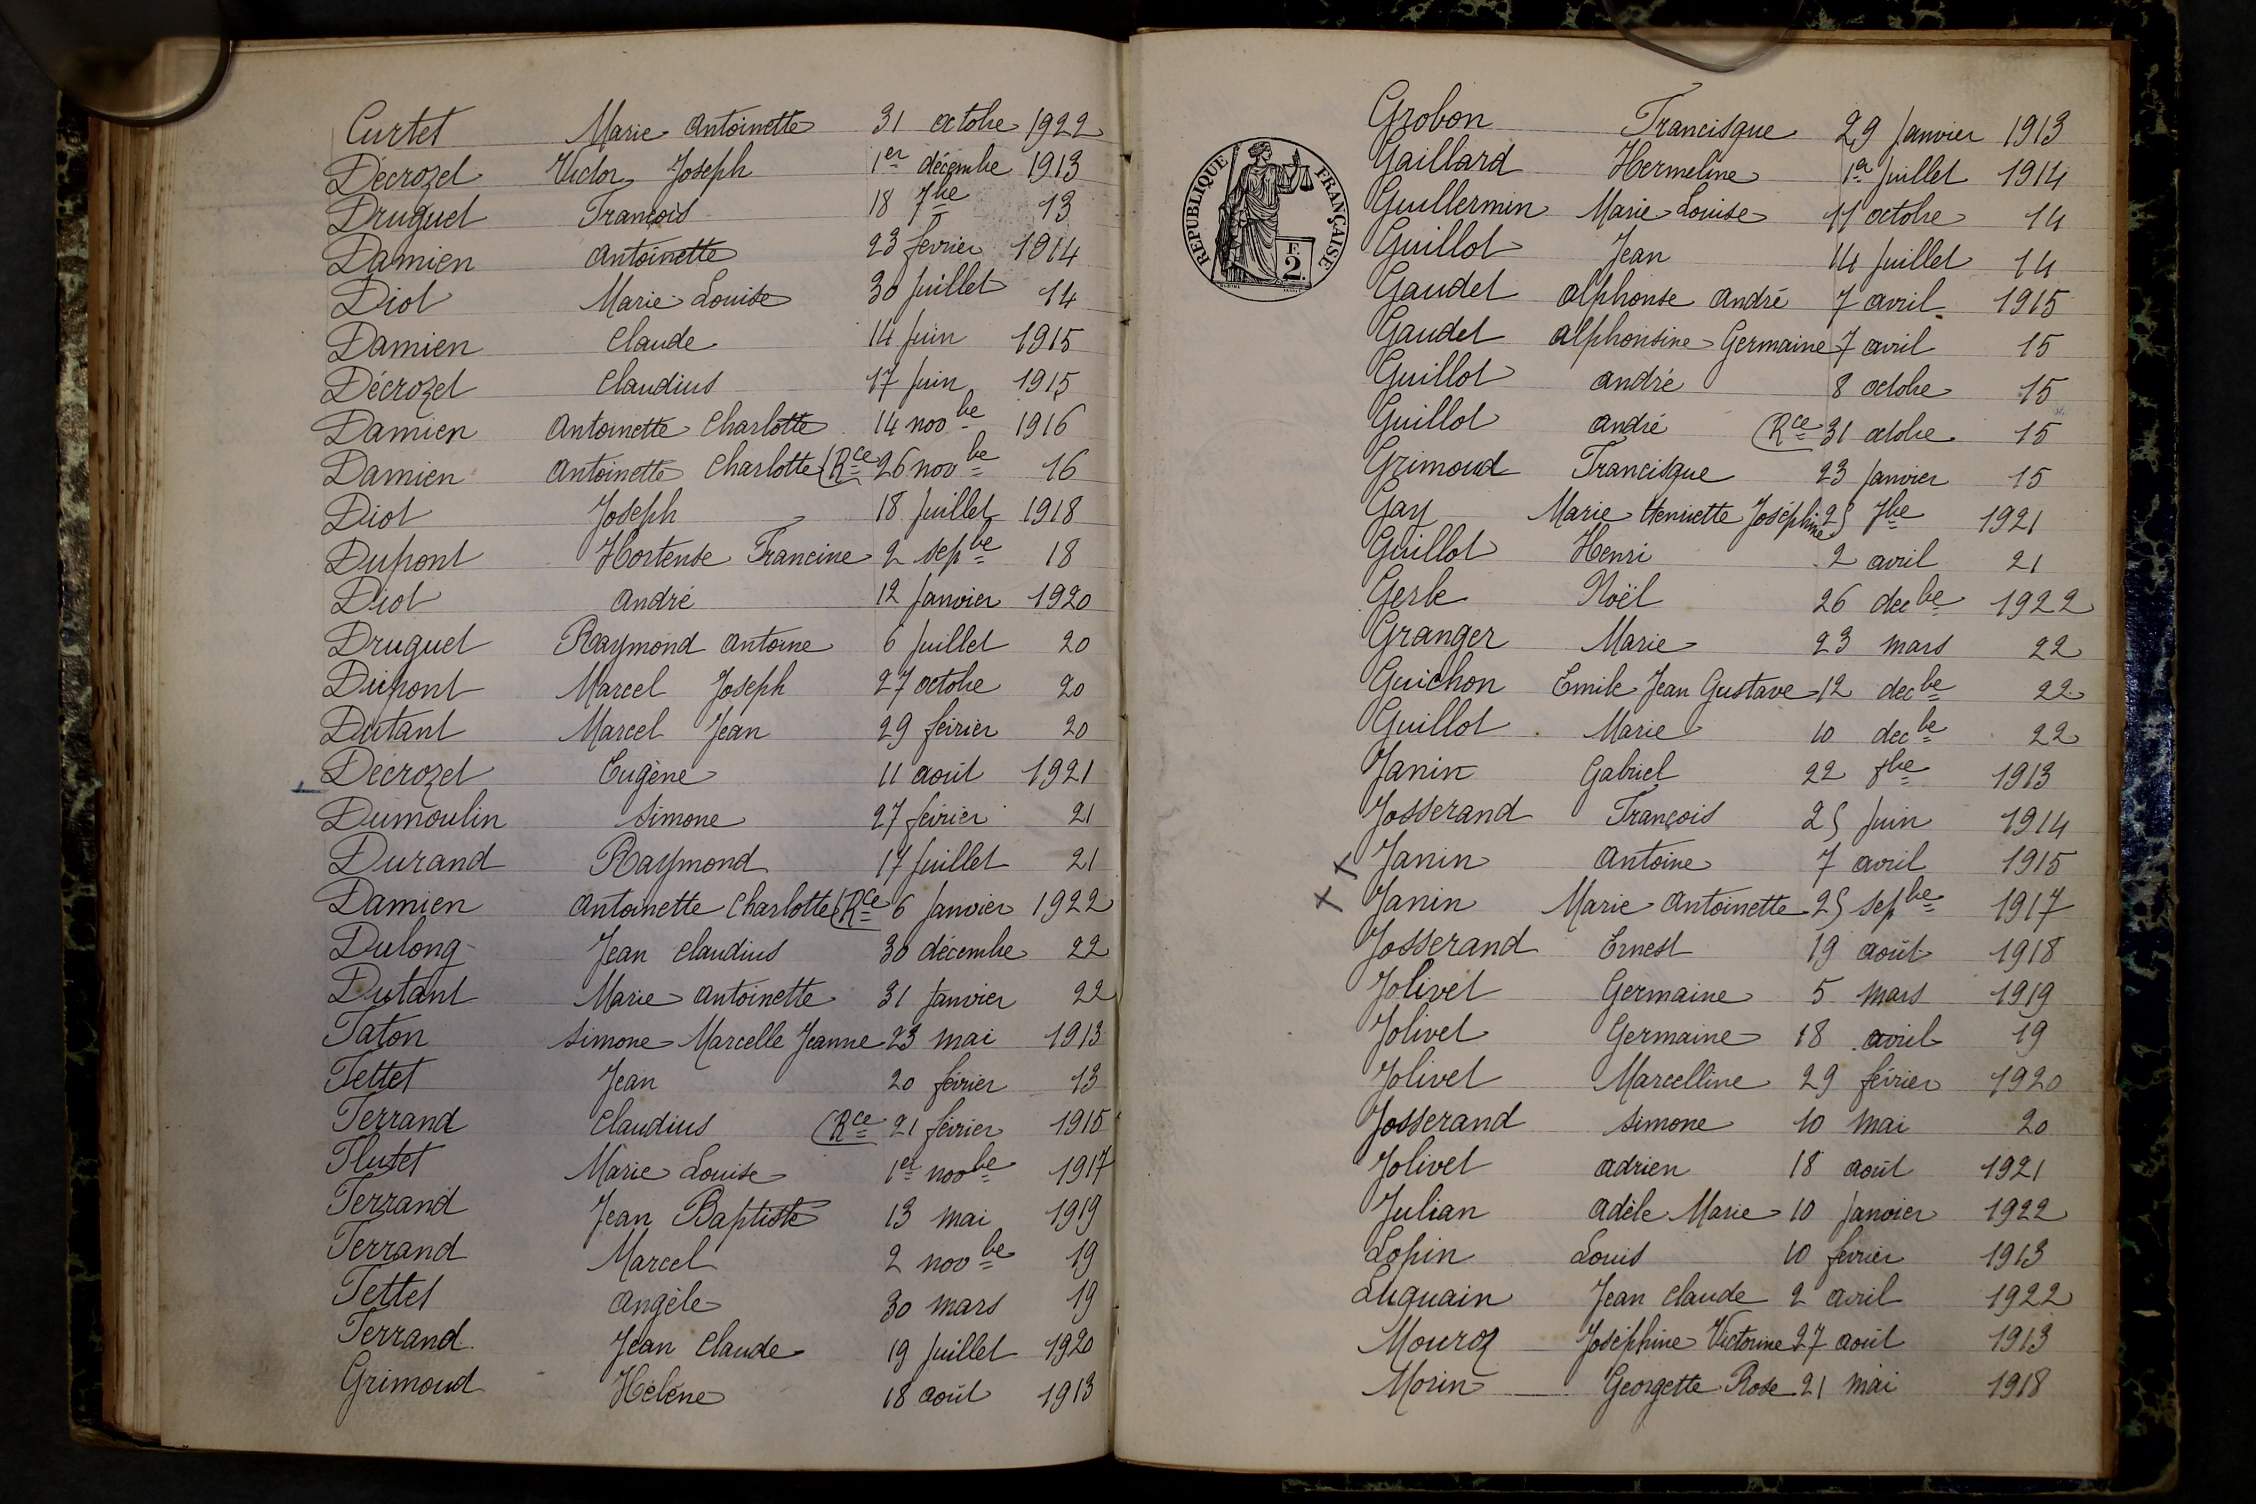 Curtet Marie Antoinette 31 octobre 1922
Decrozet Victor Joseph 1er décembre 1913
Druguet François 18 7bre 13
Damien Antoinette 23 fevrier 1914
Diot Marie Louise 30 Juillet 14
Damien Claude 14 Juin 1915
Décrozet Claudius 17 Juin 1915
Damien Antoinette Charlotte 14 novbe 1916
Damien Antoinette Charlotte (Rce 26 novbe 16
Diot Joseph 18 Juillet 1918
Dupont Hortense Francine 2 sepbe 18
Diot André 12 Janvier 1920
Druguet Raymond Antoine 6 Juillet 20
Dupont Marcel Joseph 27 octobre 20
Dutant Marcel Jean 29 février 20
Decrozet Eugène 11 août 1921
Dumoulin Simone 27 février 21
Durand Raymond 17 Juillet 21
Damien Antoinette Charlotte (Rce 6 Janvier 1922
Dulong Jean Claudius 30 décembre 22
Dutant Marie Antoinette 31 Janvier 22
Faton Simone Marcelle Jeanne 23 mai 1913
Fettet Jean 20 février 13
Ferrand Claudius (Rce 21 février 1915
Flutet Marie Louise 1er novbe 1917
Ferrand Jean Baptiste 13 mai 1919
Ferrand Marcel 2 novbe 19
Fettet Angèle 30 mars 19
Ferrand Jean Claude 19 Juillet 1920
Grimoud Hélène 18 août 1913
REPUBLIQUE FRANÇAISE
F.
2.
Grobon Francisque 29 Janvier 1913
Gaillard Hermeline 1er Juillet 1914
Guillermin Marie Louise 11 octobre 14
Guillot Jean 14 Juillet 14
Gaudet Alphonse André 7 avril 1915
Gaudet Alphonsine Germaine 7 avril 15
Guillot André 8 octobre 15
Guillot André (Rce 31 octobre 15
Grimoud Francisque 23 Janvier 15
Gay Marie Henriette Joséphine 25 7be 1921
Guillot Henri 2 avril 21
Gerbe Noël 26 decbe 1922
Granger Marie 23 mars 22
Guichon Emile Jean Gustave 12 decbe 22
Guillot Marie 10 decbe 22
Janin Gabriel 22 8be 1913
Josserand François 25 Juin 1914
x Janin Antoine 7 avril 1915
x Janin Marie Antoinette 25 sepbe 1917
Josserand Ernest 19 août 1918
Jolivet Germaine 5 mars 1919
Jolivet Germaine 18 avril 19
Jolivet Marcelline 29 février 1920
Josserand Simone 10 mai 20
Jolivet Adrien 18 août 1921
Julian Adèle Marie 10 Janvier 1922
Lopin Louis 10 fevrier 1913
Luquain Jean Claude 2 avril 1922
Mouroz Joséphine Victorine 27 août 1913
Morin Georgette Rose 21 mai 1918